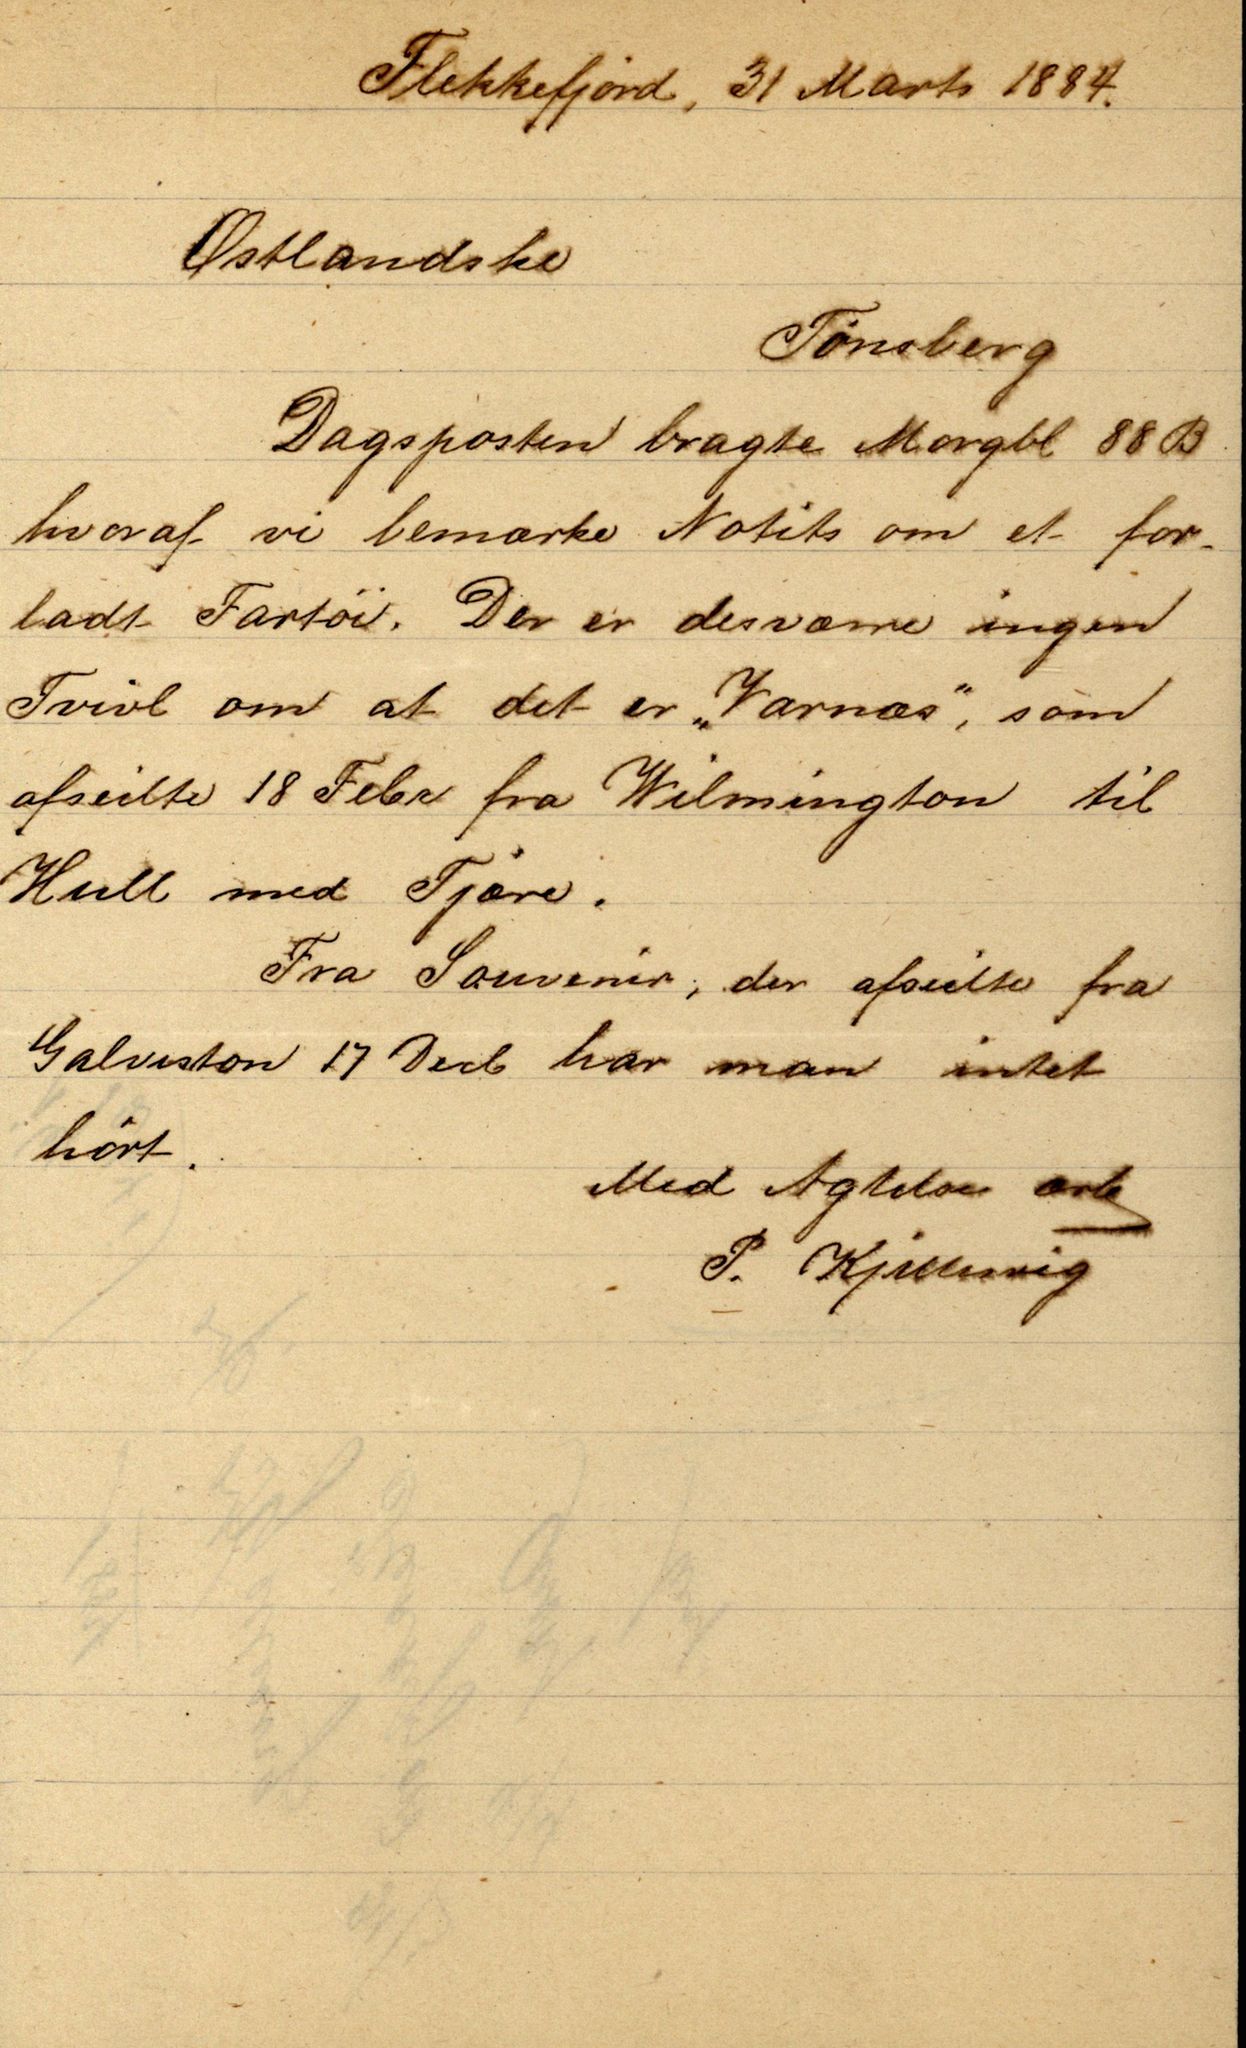 Flekkefjörd, 31 Marts 1884.
Østlandske
Tönsberg
Dagsposten bragte Morgbl 88 B
hvoraf vi bemærke Notits om et for-
ladt Fartöi. Der er desværre ingen
Tvivl om at det er „Varnæs“, som
afseilte 18 Febr fra Wilmington til
Hull med Tjære.
Fra Souvenir, der afseilte fra
Galveston 17 Decb har man intet
hört.
Med Agtelse ærb
P. Kjellesvig